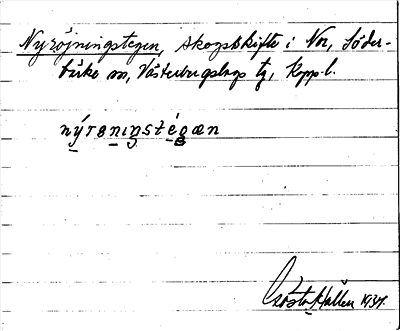 Nyröjningstegen, skogsskifte i Nor, Söder-
bärke sn, Västerbergslags tg, Kopp. l.
nýrɵniŋstégæn
Gösta Hallen 1934.